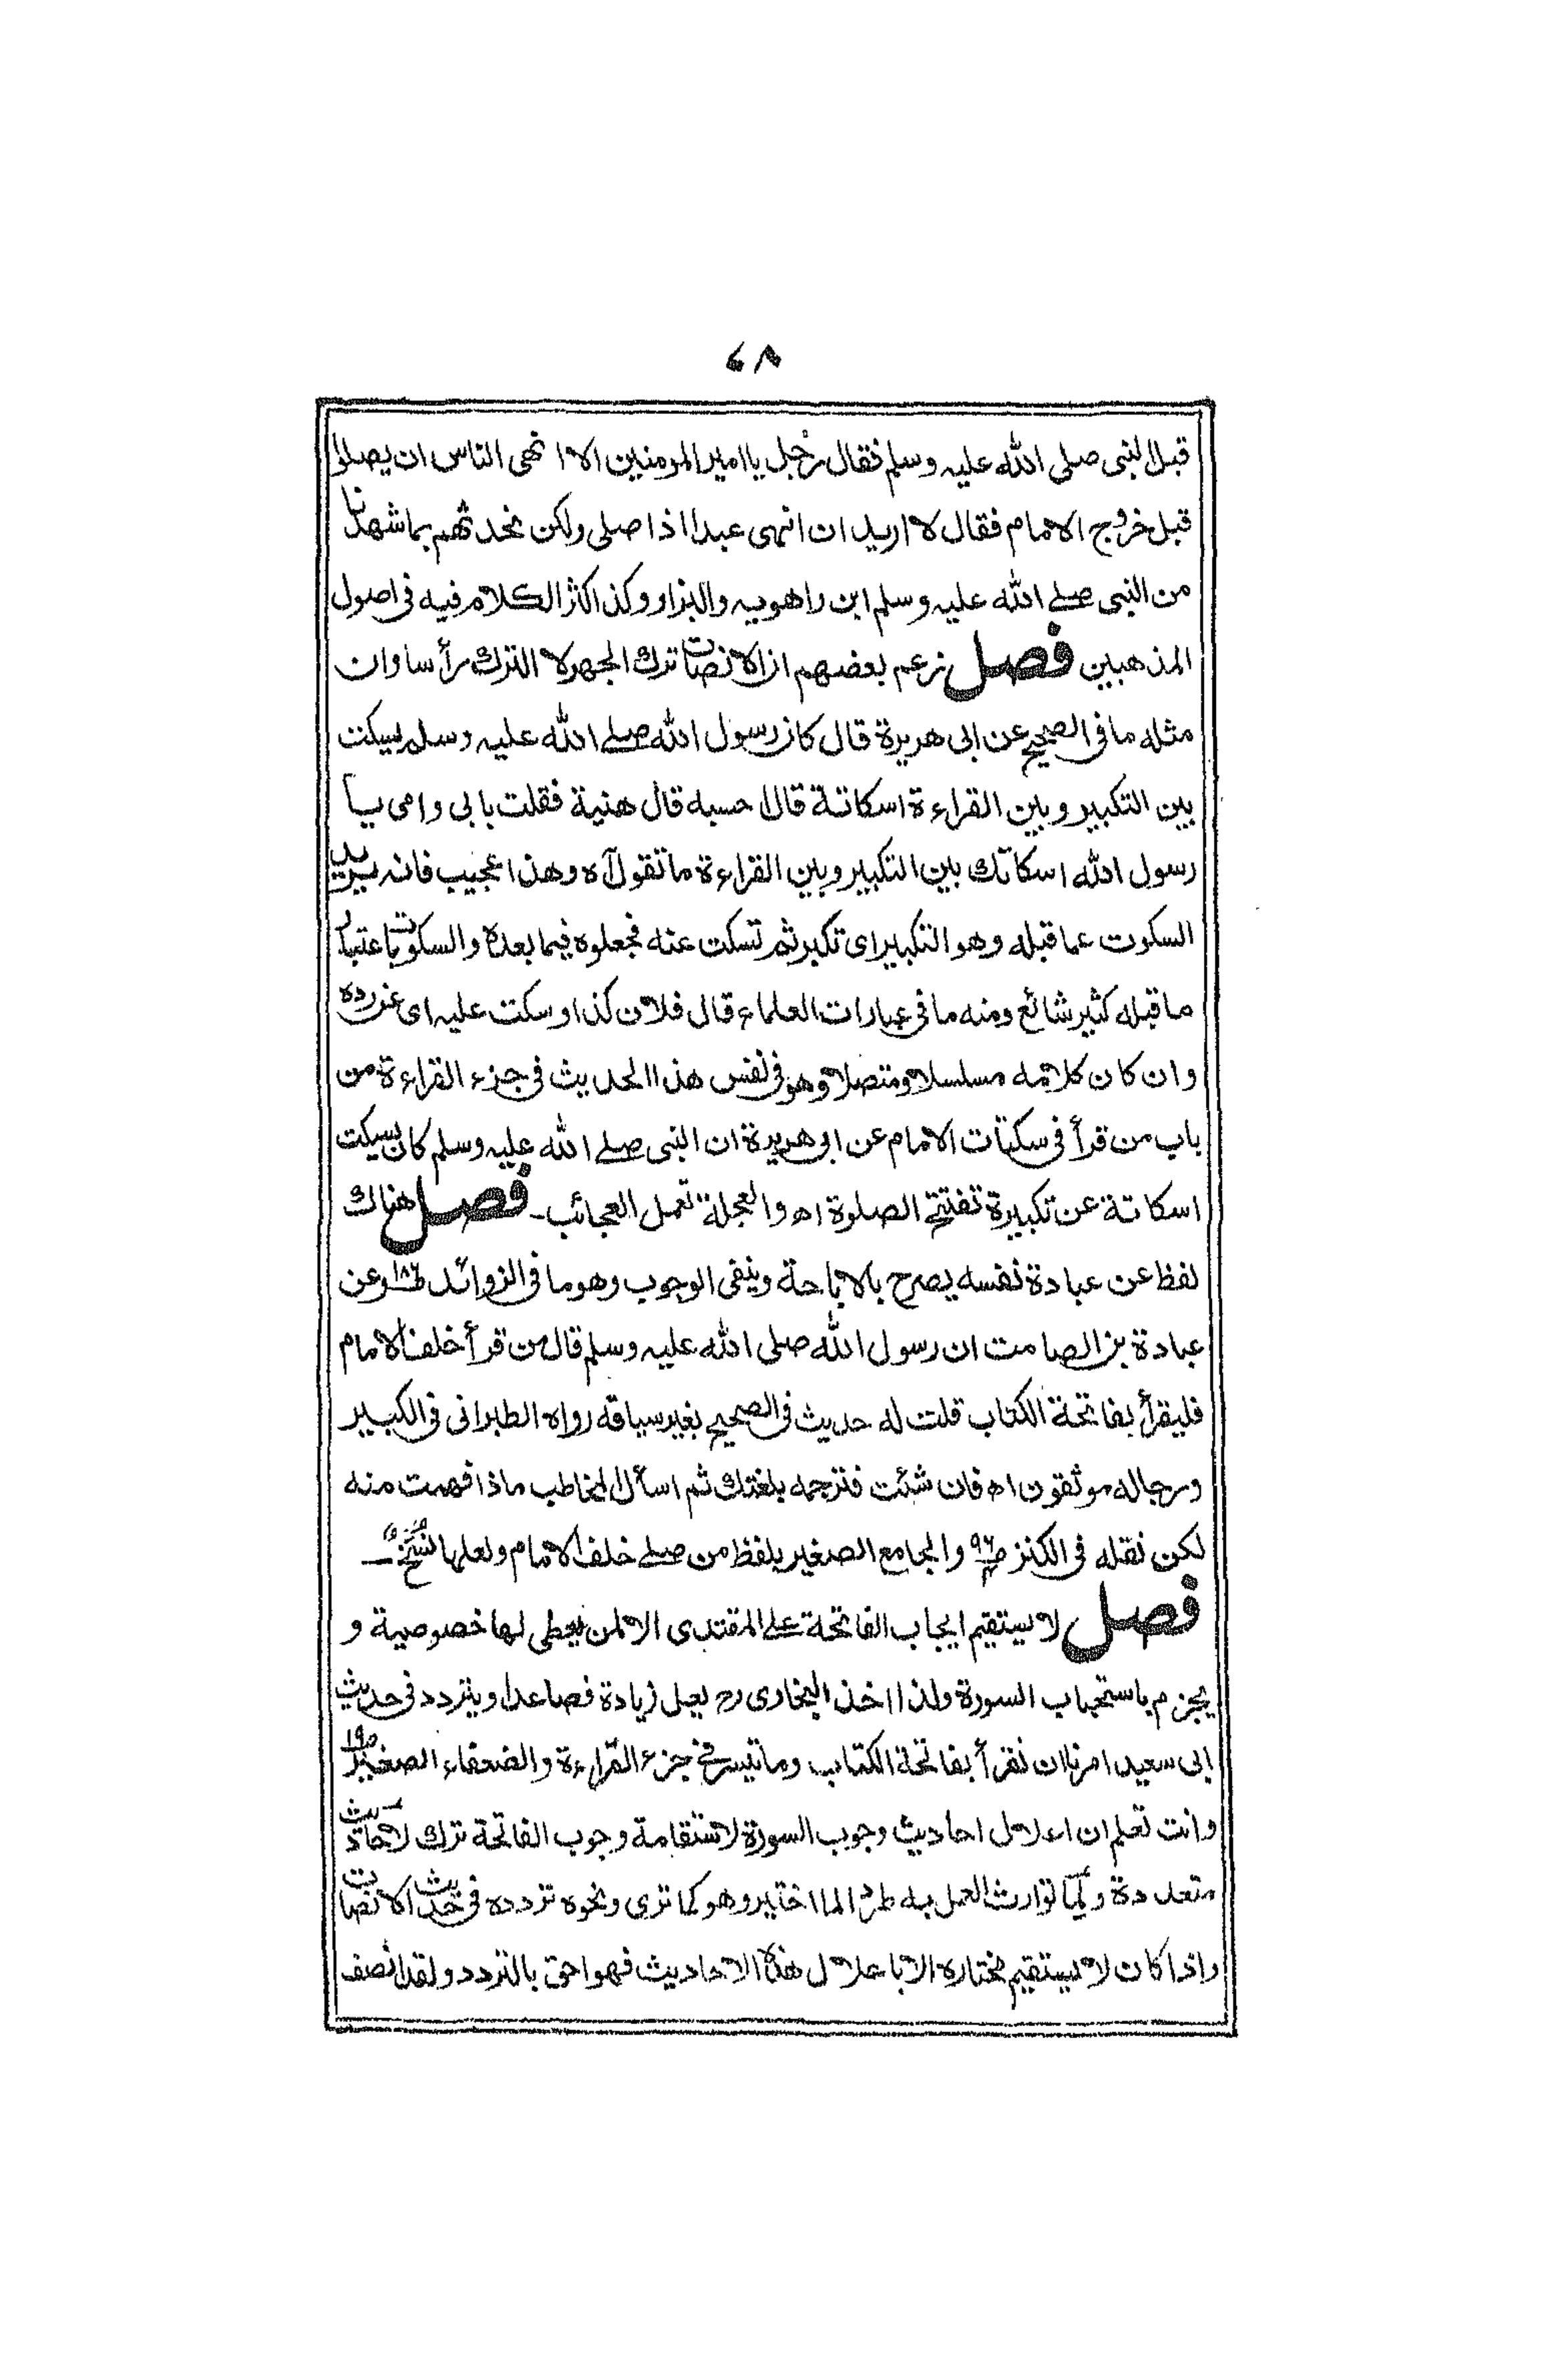 ٤٨
قبل النبى صلى الله عليه وسلم فقال رجل يا امير المومنين الا انهى الناس ان يصلوا
قبل خروج الامام فقال لا اريد ان انهى عبدا اذا صلى ولكن نحدثهم بما شهدنا
من النبى صلى الله عليه وسلم ابن راهويه والبزار وكذا اكثر الكلام فيه فى اصول
المذهبين فصل زعم بعضهم ان الانصات ترك الجهر لا الترك رأسا وان
مثله ما فى الصحيح عن ابى هريرة قال كان رسول الله صلى الله عليه وسلم يسكت
بين التكبير وبين القراءة اسكاتة قال احسبه قال هنية فقلت بابى وامى يا
رسول الله اسكاتك بين التكبير وبين القراءة ما تقول آه وهذا عجيب فانه يريد
السكوت عما قبله وهو التكبير اى تكبر ثم تسكت عنه فجعلوه فيما بعده والسكوت باعتبار
ما قبله كثير شائع ومنه ما فى عبارات العلماء قال فلان كذا وسكت عليه اى عن رده
وان كان كلامه مسلسلا ومتصلا وهو فى نفس هذا الحديث فى جزء القراءة من
باب من قرأ فى سكتات الامام عن ابى هريرة ان النبى صلى الله عليه وسلم كان يسكت
اسكاتة عن تكبيرة تفتتح الصلوة اه والعجلة تعمل العجائب۔ فصل هناك
لفظ عن عبادة نفسه يصرح بالاباحة وينفى الوجوب وهو ما فى الزوائد ص١٨٦ وعن
عبادة بن الصامت ان رسول الله صلى الله عليه وسلم قال من قرأ خلف الامام
فليقرأ بفاتحة الكتاب قلت له حديث فى الصحيح بغير سياقه رواه الطبرانى فى الكبير
ورجاله موثقون اه فان شئت فترجمه بلغتك ثم اسأل المخاطب ماذا فهمت منه
لكن نقله فى الكنز ص٩٦ والجامع الصغير بلفظ من صلى خلف الامام ولعلها نسخ۔
فصل لا يستقيم ايجاب الفاتحة على المقتدى الا لمن يعطى لها خصوصية و
يجزم باستحباب السورة ولذا اخذ البخارى رح يعل زيادة فصاعدا ويتردد فى حديث
ابى سعيد امرنا ان نقرأ بفاتحة الكتاب وما تيسر فى جزء القراءة والضعفاء الصغير ص١٩
وانت تعلم ان اعلال احاديث وجوب السورة لاستقامة وجوب الفاتحة ترك لاحاديث
متعددة ولما توارث العمل به طردا لما اختير وهو كما ترى ونحوه تردده فى حديث الانصات
واذا كان لا يستقيم مختاره الا باعلال هذه الاحاديث فهو احق بالتردد ولقد انصف